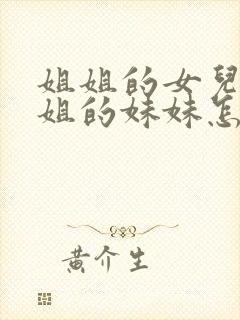 姐姐的女兒
姐的妹妹怎
黃介生